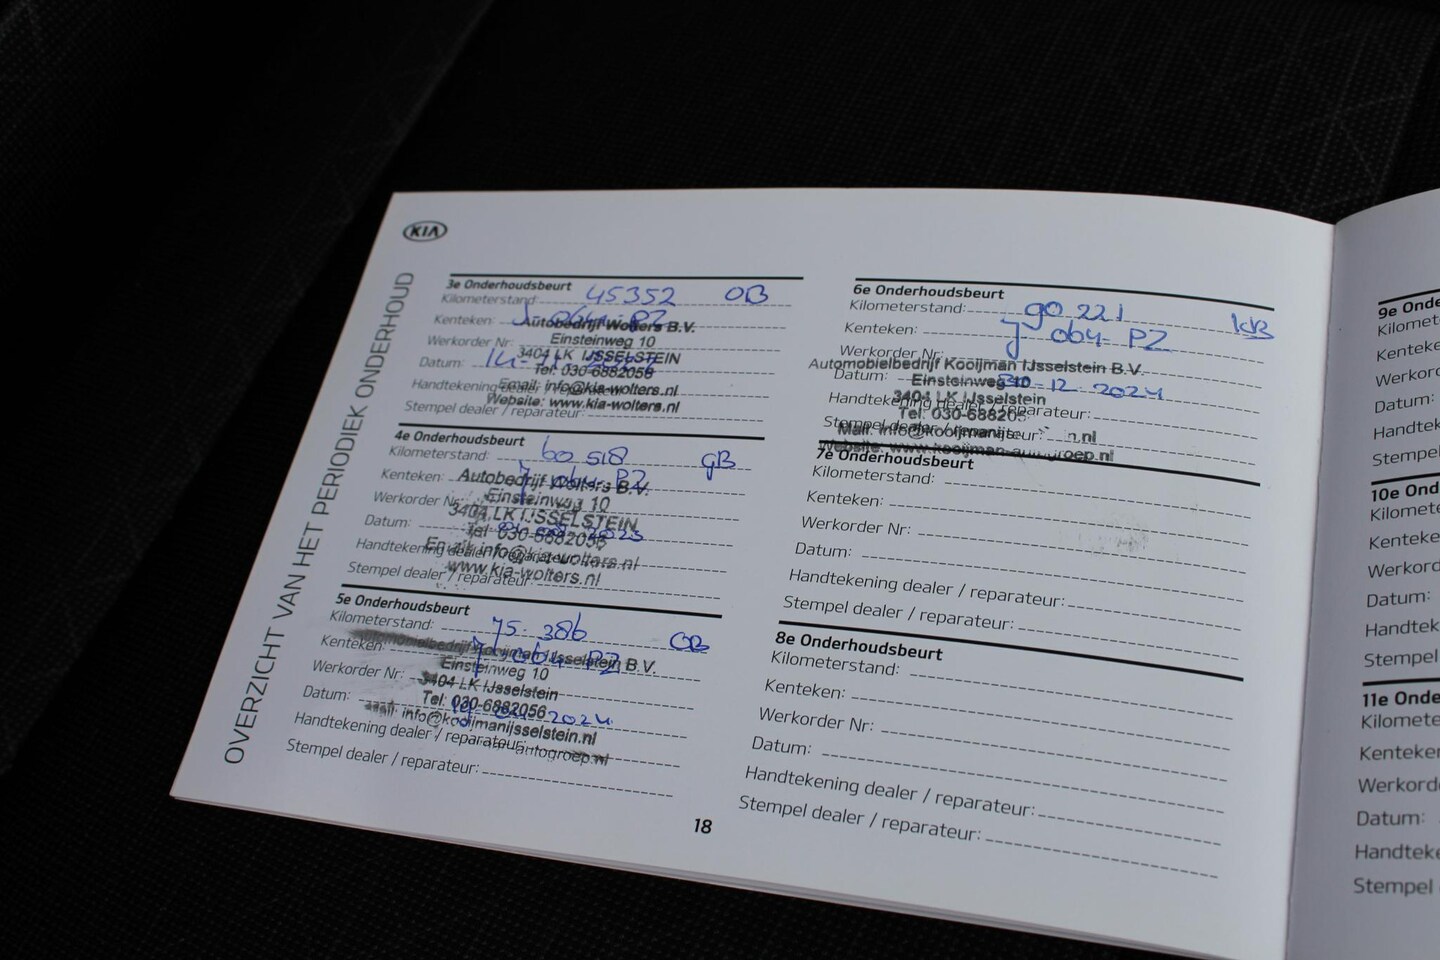 KIA
OVERZICHT VAN HET PERIODIEK ONDERHOUD
3e Onderhoudsbeurt
Kilometerstand: 45352 OB
Kenteken: J-064-PZ
Autobedrijf Wolters B.V.
Werkorder Nr:
Einsteinweg 10
3404 LK IJSSELSTEIN
Datum: 14-
Tel: 030-6882056
Handtekening dealer / reparateur:
Email: info@kia-wolters.nl
Website: www.kia-wolters.nl
Stempel dealer / reparateur:
4e Onderhoudsbeurt
Kilometerstand: 60 518 GB
Kenteken: J 064 PZ
Autobedrijf Wolters B.V.
Werkorder Nr:
Einsteinweg 10
3404 LK IJSSELSTEIN
Datum: 2023
Tel: 030-6882056
Handtekening dealer / reparateur:
info@kia-wolters.nl
www.kia-wolters.nl
Stempel dealer / reparateur:
5e Onderhoudsbeurt
Kilometerstand: 75.386 OB
Kenteken: J 064 PZ
Automobielbedrijf Kooijman IJsselstein B.V.
Werkorder Nr:
Einsteinweg 10
3404 LK IJsselstein
Datum: 2024
Tel: 030-6882056
Mail: info@kooijmanijsselstein.nl
Handtekening dealer / reparateur:
autogroep.nl
Stempel dealer / reparateur:
6e Onderhoudsbeurt
Kilometerstand: 90 221 KB
Kenteken: J 064 PZ
Werkorder Nr:
Automobielbedrijf Kooijman IJsselstein B.V.
Datum: 30-12-2024
Einsteinweg 10
3404 LK IJsselstein
Handtekening dealer / reparateur:
Tel: 030-688205
Stempel dealer / reparateur:
Mail: info@kooijmanijsse n.nl
Website: www.kooijman-autogroep.nl
7e Onderhoudsbeurt
Kilometerstand:
Kenteken:
Werkorder Nr:
Datum:
Handtekening dealer / reparateur:
Stempel dealer / reparateur:
8e Onderhoudsbeurt
Kilometerstand:
Kenteken:
Werkorder Nr:
Datum:
Handtekening dealer / reparateur:
Stempel dealer / reparateur:
18
9e Onde
Kilomet
Kenteke
Werkord
Datum:
Handtek
Stempel
10e Ond
Kilomete
Kenteke
Werkord
Datum:
Handtek
Stempel
11e Onde
Kilomete
Kenteken
Werkord
Datum:
Handteke
Stempel